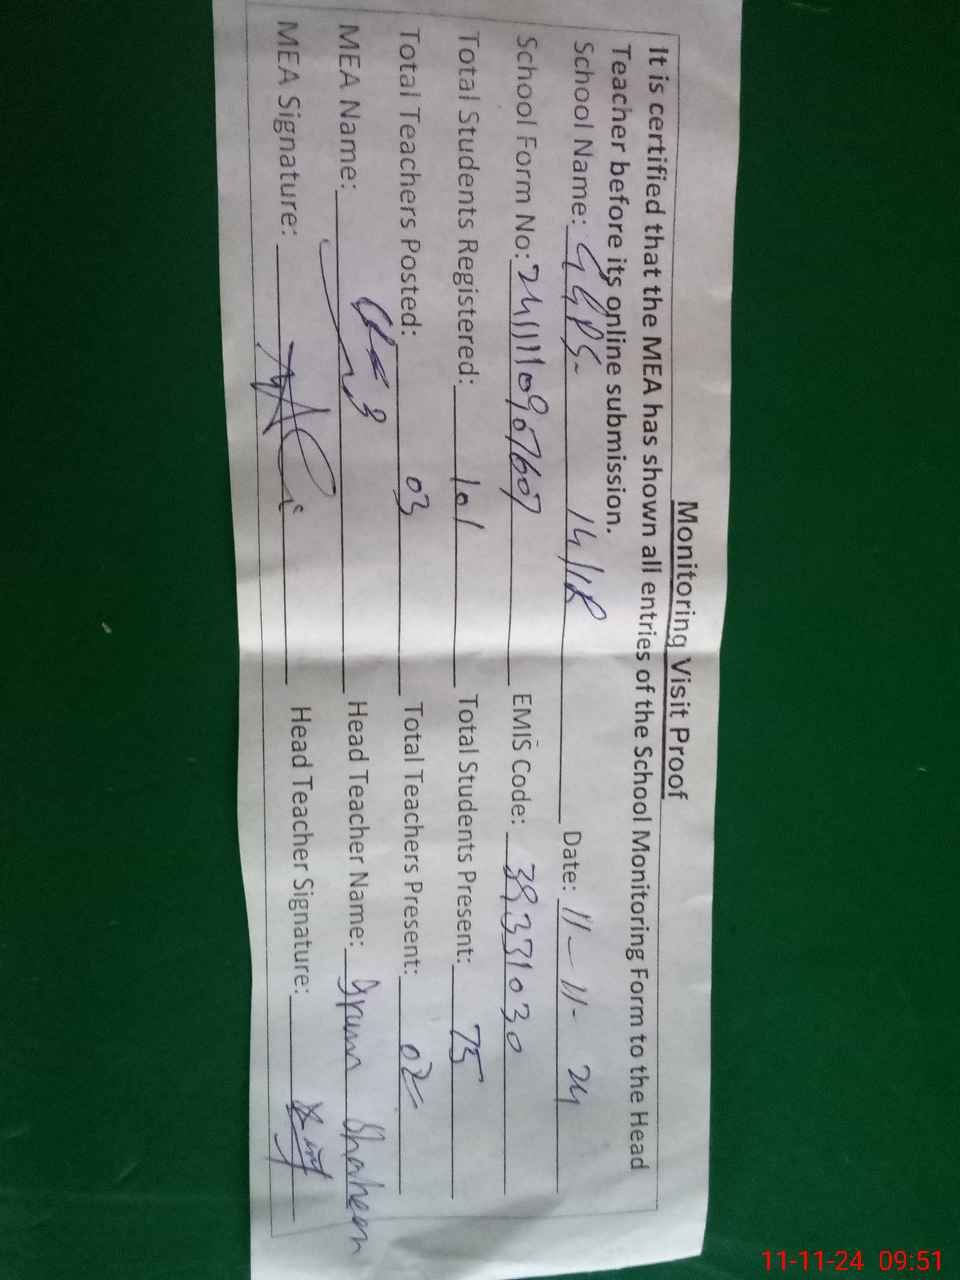 Monitoring Visit Proof
It is certified that the MEA has shown all entries of the School Monitoring Form to the Head
Teacher before its online submission.
School Name: GGPS 14/1R Date: 11-11-24
School Form No: EMIS Code: 39331030
Total Students Registered: 101 Total Students Present: 75
Total Teachers Posted: 03 Total Teachers Present: 02
MEA Name: Head Teacher Name: Irum Shaheen
MEA Signature: Head Teacher Signature:
11-11-24 09:51